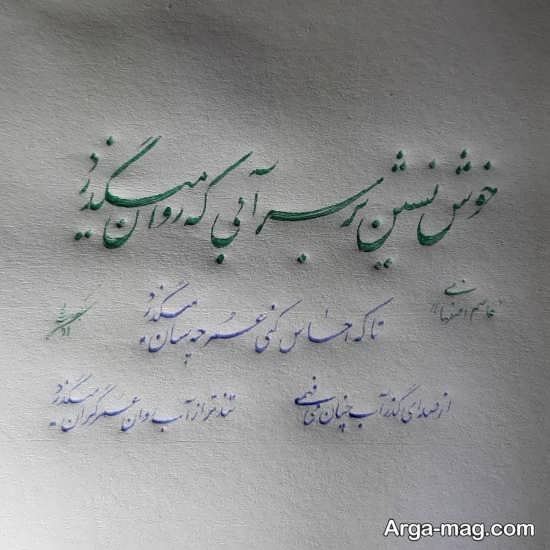 خوش نشین بر سر آبی که روان میگذرد
تا که احساس کنی عمر چه سان میگذرد
از صدای گذر آب چنان می فهمی
تندتر از آب روان عمر گران میگذرد
Arga-mag.com